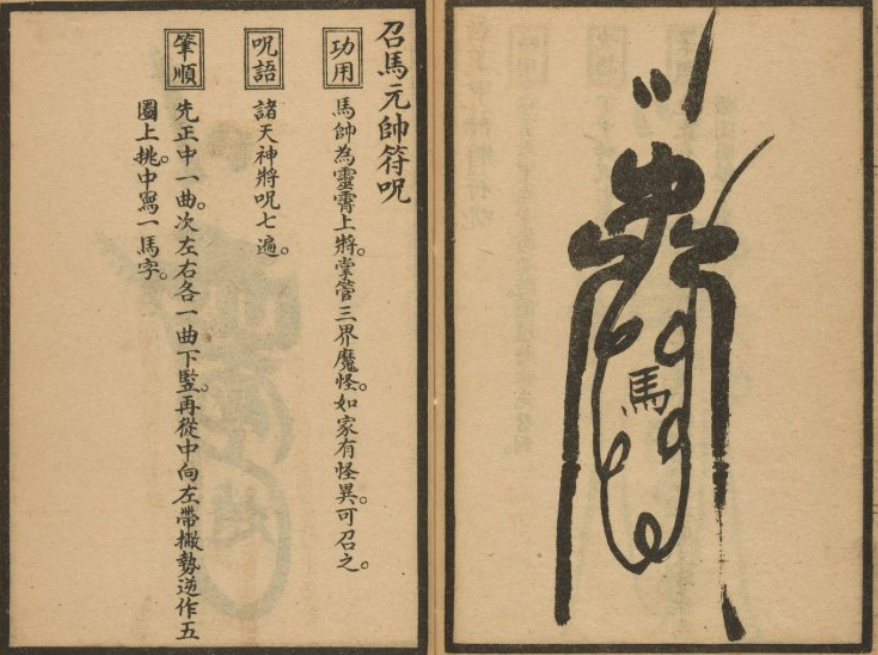 召馬元帥符呪
功用
馬帥為靈霄上將。掌管三界魔怪。如家有怪異。可召之。
呪語
諸天神將呪七遍。
筆順
先正中一曲。次左右各一曲下監。再從中向左帶撇勢逆作五
圈上挑。中寫一馬字。
馬